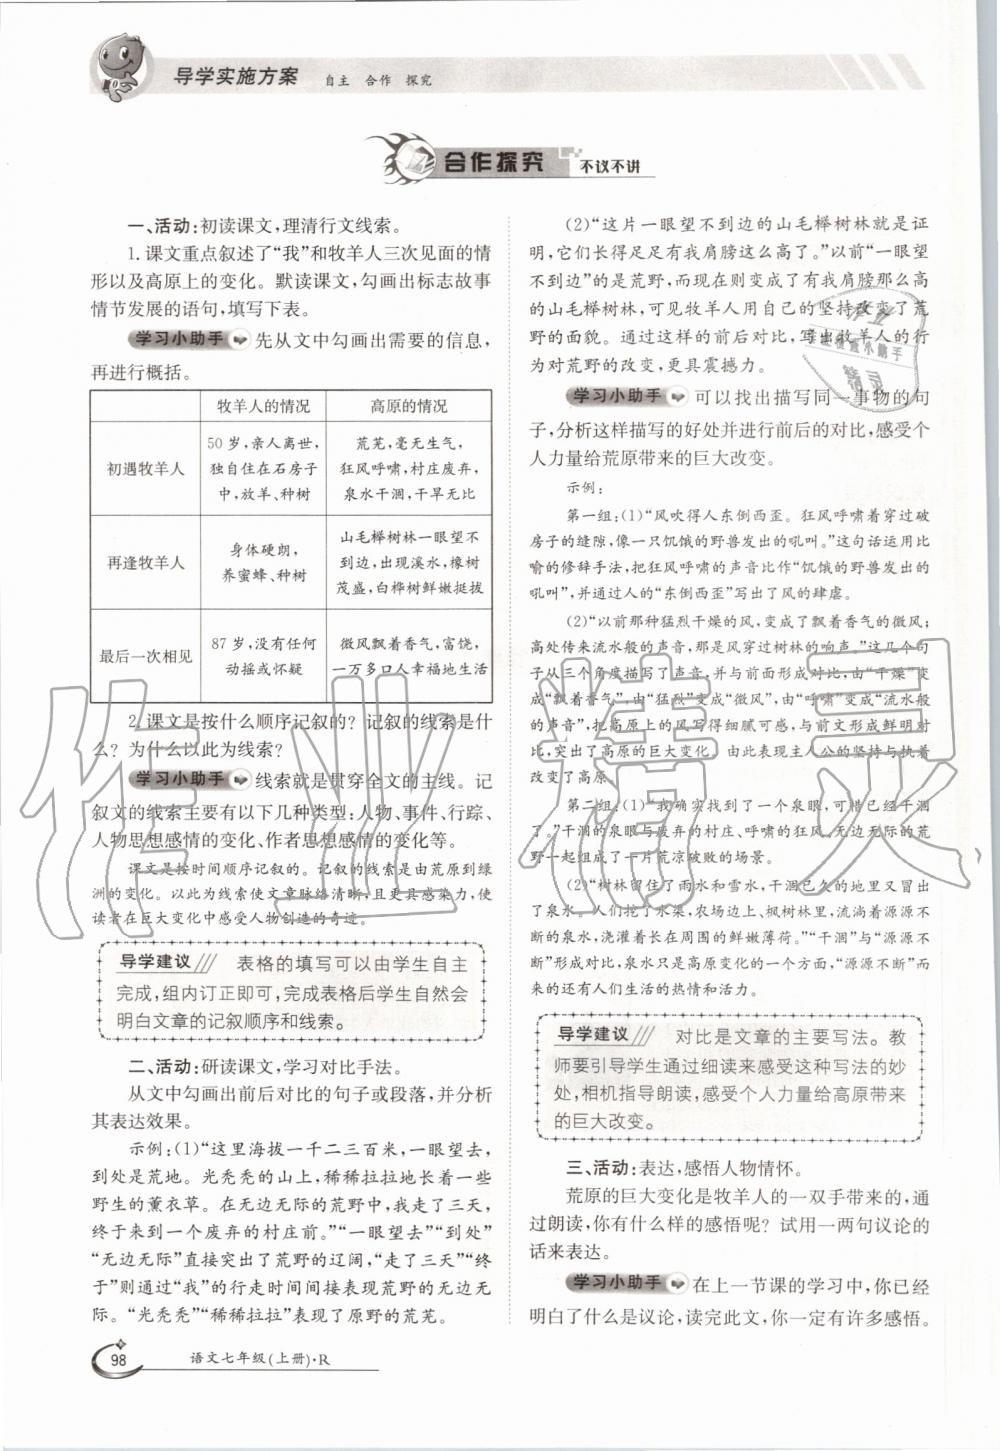 导学实施方案 自主 合作 探究
合作探究 不议不讲
一、活动:初读课文,理清行文线索。
1.课文重点叙述了“我”和牧羊人三次见面的情
形以及高原上的变化。默读课文,勾画出标志故事
情节发展的语句,填写下表。
学习小助手 先从文中勾画出需要的信息,
再进行概括。
牧羊人的情况 高原的情况
初遇牧羊人
50岁,亲人离世,
独自住在石房子
中,放羊、种树
荒芜,毫无生气,
狂风呼啸,村庄废弃,
泉水干涸,干旱无比
再逢牧羊人
身体硬朗,
养蜜蜂、种树
山毛榉树林一眼望不
到边,出现溪水,橡树
茂盛,白桦树鲜嫩挺拔
最后一次相见
87岁,没有任何
动摇或怀疑
微风飘着香气,富饶,
一万多口人幸福地生活
2.课文是按什么顺序记叙的?记叙的线索是什
么?为什么以此为线索?
学习小助手 线索就是贯穿全文的主线。记
叙文的线索主要有以下几种类型:人物、事件、行踪、
人物思想感情的变化、作者思想感情的变化等。
课文是按时间顺序记叙的。记叙的线索是由荒原到绿
洲的变化。以此为线索使文章脉络清晰,且更具感染力,使
读者在巨大变化中感受人物创造的奇迹。
导学建议 表格的填写可以由学生自主
完成,组内订正即可,完成表格后学生自然会
明白文章的记叙顺序和线索。
二、活动:研读课文,学习对比手法。
从文中勾画出前后对比的句子或段落,并分析
其表达效果。
示例:(1)“这里海拔一千二三百米,一眼望去,
到处是荒地。光秃秃的山上,稀稀拉拉地长着一些
野生的薰衣草。在无边无际的荒野中,我走了三天,
终于来到一个废弃的村庄前。”“一眼望去”“到处”
“无边无际”直接突出了荒野的辽阔,“走了三天”“终
于”则通过“我”的行走时间间接表现荒野的无边无
际。“光秃秃”“稀稀拉拉”表现了原野的荒芜。
(2)“这片一眼望不到边的山毛榉树林就是证
明,它们长得足足有我肩膀这么高了。”以前“一眼望
不到边”的是荒野,而现在则变成了有我肩膀那么高
的山毛榉树林,可见牧羊人用自己的坚持改变了荒
野的面貌。通过这样的前后对比,写出牧羊人的行
为对荒野的改变,更具震撼力。
学习小助手 可以找出描写同一事物的句
子,分析这样描写的好处并进行前后的对比,感受个
人力量给荒原带来的巨大改变。
示例:
第一组:(1)“风吹得人东倒西歪。狂风呼啸着穿过破
房子的缝隙,像一只饥饿的野兽发出的吼叫。”这句话运用比
喻的修辞手法,把狂风呼啸的声音比作“饥饿的野兽发出的
吼叫”,并通过人的“东倒西歪”写出了风的肆虐。
(2)“以前那种猛烈干燥的风,变成了飘着香气的微风;
高处传来流水般的声音,那是风穿过树林的响声。”这几个句
子从三个角度描写了声音,与前面形成对比,由“干燥”变
成“飘着香气”,由“猛烈”变成“微风”,由“呼啸”变成“流水般
的声音”,把高原上的风写得细腻可感,与前文形成鲜明对
比,突出了高原的巨大变化。由此表现主人公的坚持与执着
改变了高原。
第二组:(1)“我确实找到了一个泉眼,可惜已经干涸
了。”干涸的泉眼与废弃的村庄、呼啸的狂风、无边无际的荒
野一起组成了一片荒凉破败的场景。
(2)“树林留住了雨水和雪水,干涸已久的地里又冒出
了泉水。人们挖了水渠,农场边上、枫树林里,流淌着源源不
断的泉水,浇灌着长在周围的鲜嫩薄荷。”“干涸”与“源源不
断”形成对比,泉水只是高原变化的一个方面,“源源不断”而
来的还有人们生活的热情和活力。
导学建议 对比是文章的主要写法。教
师要引导学生通过细读来感受这种写法的妙
处,相机指导朗读,感受个人力量给高原带来
的巨大改变。
三、活动:表达,感悟人物情怀。
荒原的巨大变化是牧羊人的一双手带来的,通
过朗读,你有什么样的感悟呢?试用一两句议论的
话来表达。
学习小助手 在上一节课的学习中,你已经
明白了什么是议论,读完此文,你一定有许多感悟。
98 语文七年级(上册)·R
作业精灵
作业
精灵